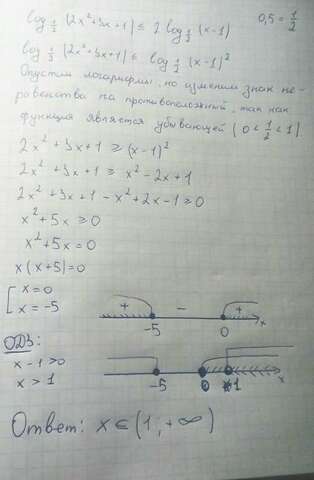 log_{1/2} (2x²+3x+1) ≤ 2 log_{1/2} (x-1) 0,5 = 1/2
log_{1/2} (2x²+3x+1) ≤ log_{1/2} (x-1)²
Опустим логарифмы, но изменим знак не-
равенства на противоположный, так как
функция является убывающей (0 < 1/2 < 1).
2x² + 3x + 1 ≥ (x-1)²
2x² + 3x + 1 ≥ x² - 2x + 1
2x² + 3x + 1 - x² + 2x - 1 ≥ 0
x² + 5x ≥ 0
x² + 5x = 0
x(x+5) = 0
[ x = 0
x = -5
+ - +
-5 0 x
ОДЗ:
x - 1 > 0
x > 1
-5 0 1 x
Ответ: x ∈ (1; +∞)